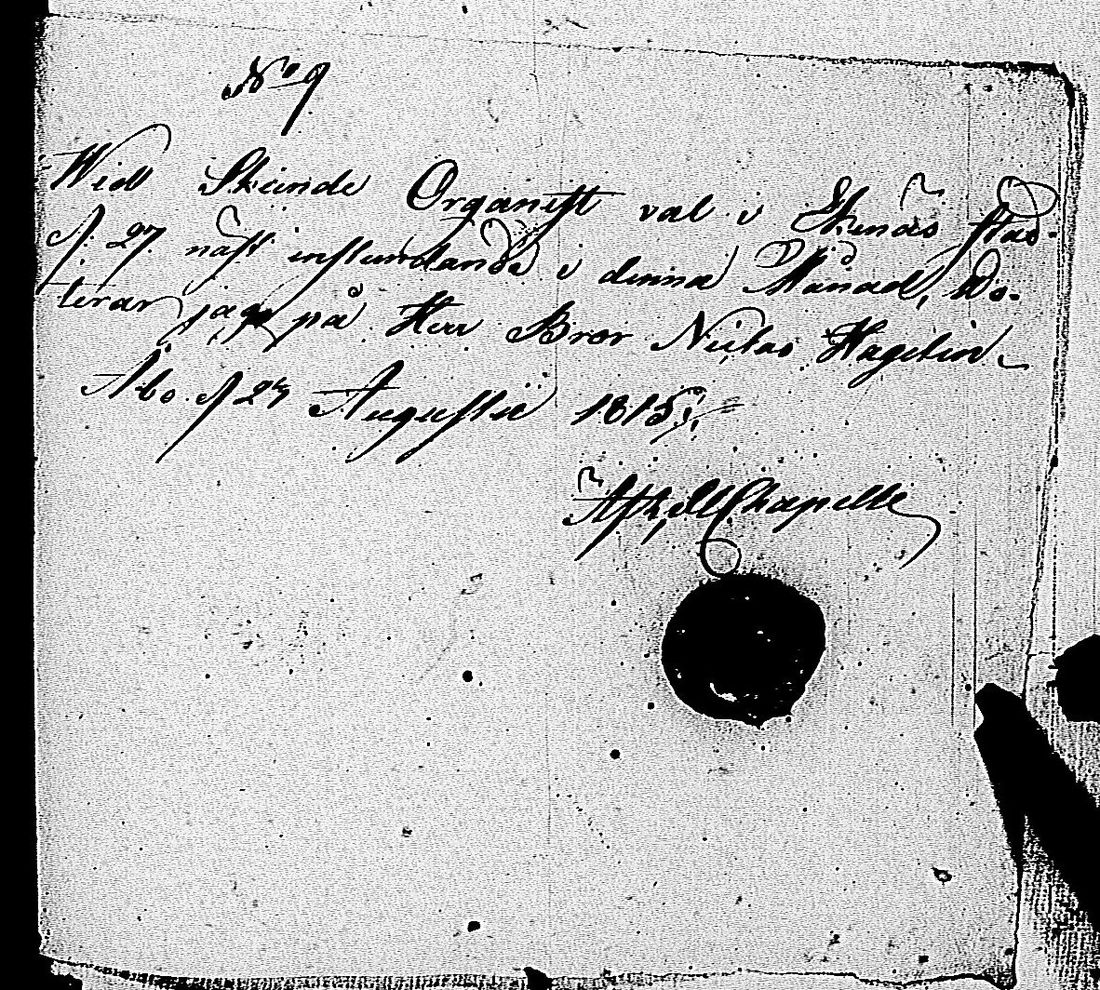 No 9
Wid Skeinde Organist val i Ekenäs stad.
d. 27 näst instundande i denna Månad, Wo-
terar jag på Herr Bror Niclas Hagelin.
Åbo d 23 Augusti 1815.
Chapelle